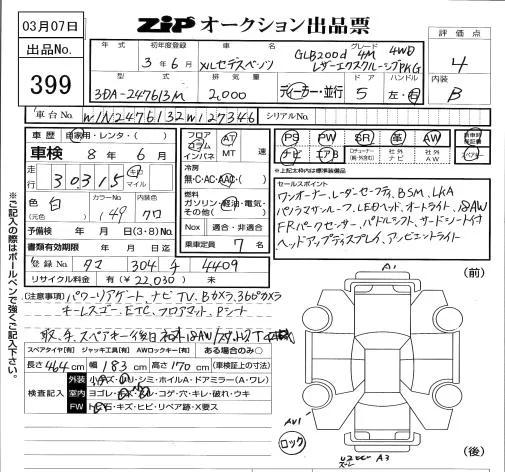 03月07日
ZIP オークション出品票
出品No.
399
年式 初年度登録 車名 グレード 評価点
3年6月 メルセデスベンツ GLB200d 4M 4WD レザーエクスクルーシブPKG 4
型式 排気量 ドア ハンドル 内装
3DA-247613M 2,000 ディーラー・並行 5 左・右 B
車台No. W1N2476132W127346 シリアルNo.
車歴 自家用・レンタ・( )
フロア コラム インパネ AT MT 速
PS PW SR 革 AW
ナビ エアB 社外ナビ 社外AW
車検 8年6月
走行 30315 キロ マイル
冷房 無・C・AC・AAC・( )
※上記太枠内は標準装備
色(元色) 白 カラーNo. 149 クロ
燃料 ガソリン・軽油・電気・その他( )
予備検 年 月 日(3・8)No.
Nox 適合・非適合
書類有効期限 年 月 日迄
乗車定員 7名
セールスポイント
ワンオーナー、レーダーセーフティ、BSM、LKA
パノラマルーフ、LEDヘッド、オートライト、18AW
FRパークセンサー、パドルシフト、サードシート付
ヘッドアップディスプレイ、アンビエントライト
登録No. タマ 304 チ 4409
リサイクル料金 有(¥22,030)無
(注意事項) パワーリアゲート、ナビ TV、Bカメラ、360°カメラ
キーレスゴー、ETC、フロアマット、Pシート
取、手、スペアキー後日
スペアタイヤ[有] ジャッキ工具[有] AWロックキー[有] ある場合のみ○
長さ464cm 幅183cm 高さ170cm (車検証上の寸法)
検査記入
外装 小キズ・小U・シミ・ホイルA・ドアミラー(A・ワレ)
室内 ヨゴレ・コゲ・穴・キレ・破れ・ウキ
FW トビ石・キズ・ヒビ・リペア跡・X要ス
※ご記入の際はボールペンで強くご記入下さい。
(前)
A1
AW1
ロック
A3
(後)